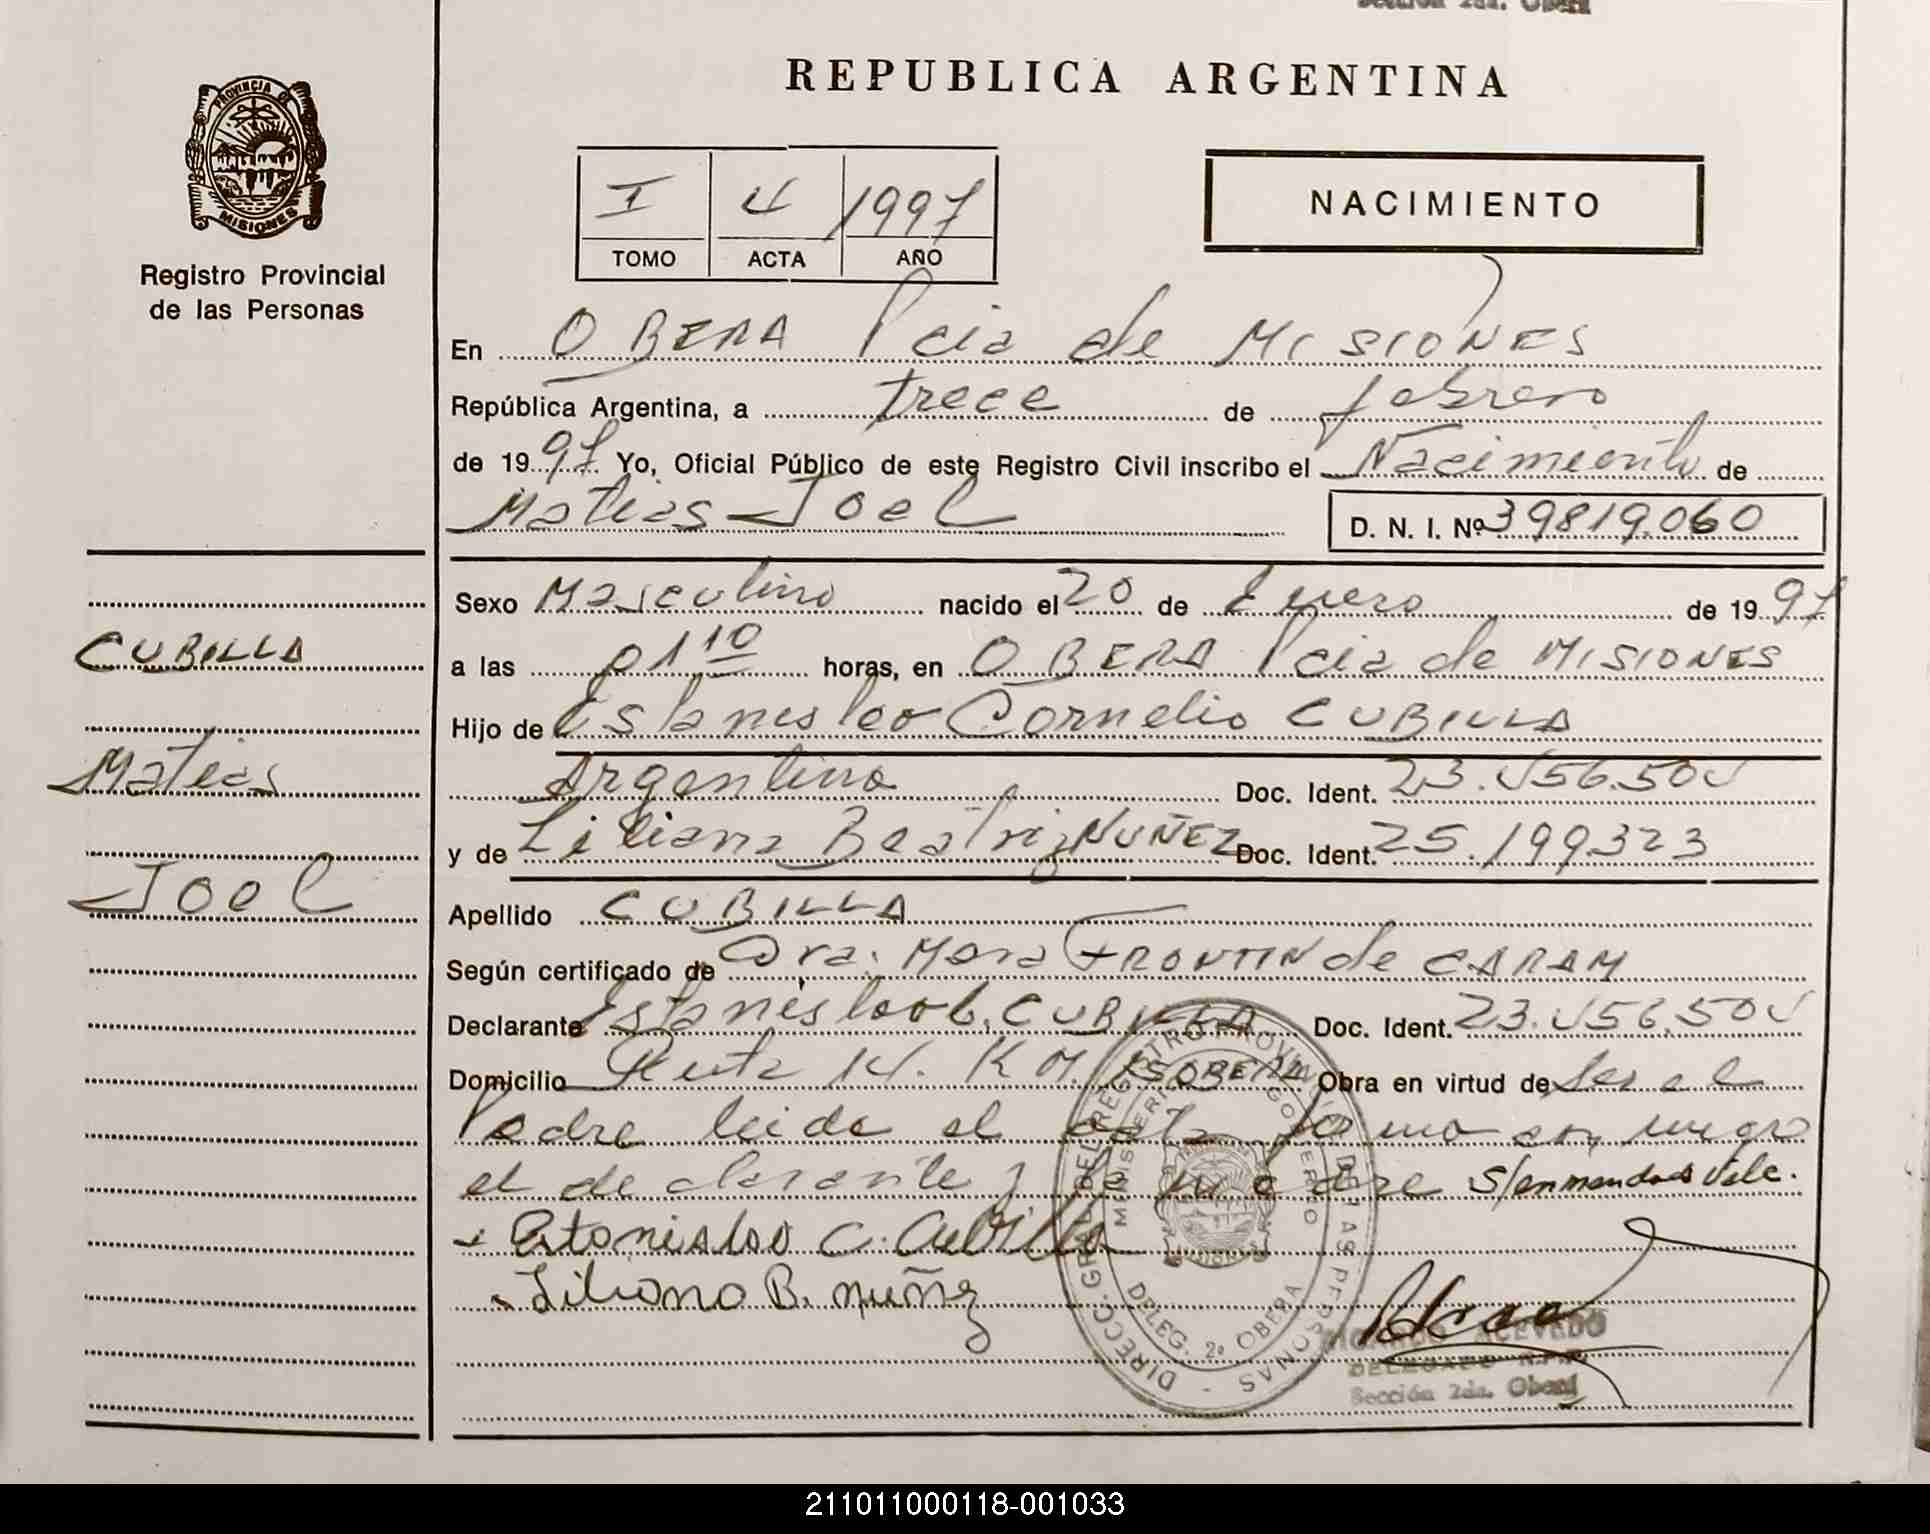 Sección 2da. Oberá
REPUBLICA ARGENTINA
PROVINCIA DE
MISIONES
Registro Provincial
de las Personas
I 4 1997
TOMO ACTA AÑO
NACIMIENTO
En OBERA Pcia de MISIONES
República Argentina, a trece de febrero
de 1997 Yo, Oficial Público de este Registro Civil inscribo el Nacimiento de
Matias Joel D. N. I. Nº 39819.060
Sexo Masculino nacido el 20 de Enero de 1997
a las 01 10 horas, en OBERA Pcia de MISIONES
Hijo de Estanislao Cornelio CUBILLA
Argentino Doc. Ident.
y de Liliana Beatriz NUÑEZ Doc. Ident. 25.199323
Apellido CUBILLA
Según certificado de Dra. Mara FRONTIN de CARAM
Declarante Estanislao C. CUBILLA Doc. Ident.
Domicilio Ruta 14. KM. OBERA Obra en virtud de ser el
Padre leida el acta firman
el declarante y la madre s/enmendado Vale.
Estanislao C. Cubilla
Liliana B. nuñez
CUBILLA
Matias
Joel
DIRECC. GRAL. DEL REGISTRO PROVINCIAL DE LAS PERSONAS
MINISTERIO GOBIERNO
DELEG. 2a OBERA
RICARDO ACEVEDO
DELEGADO R.P.P.
Sección 2da. Oberá
211011000118-001033